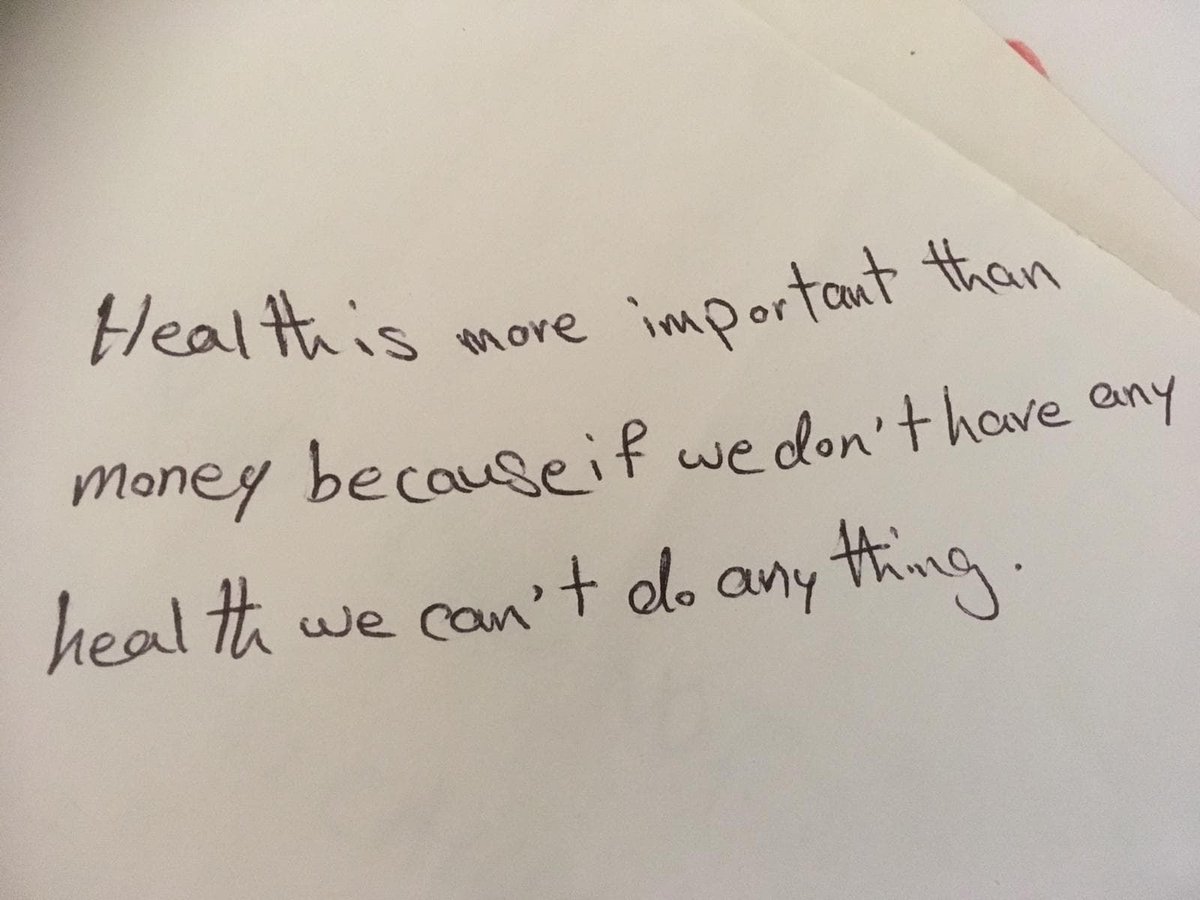 Health is more important than
money because if we don't have any
health we can't do any thing.